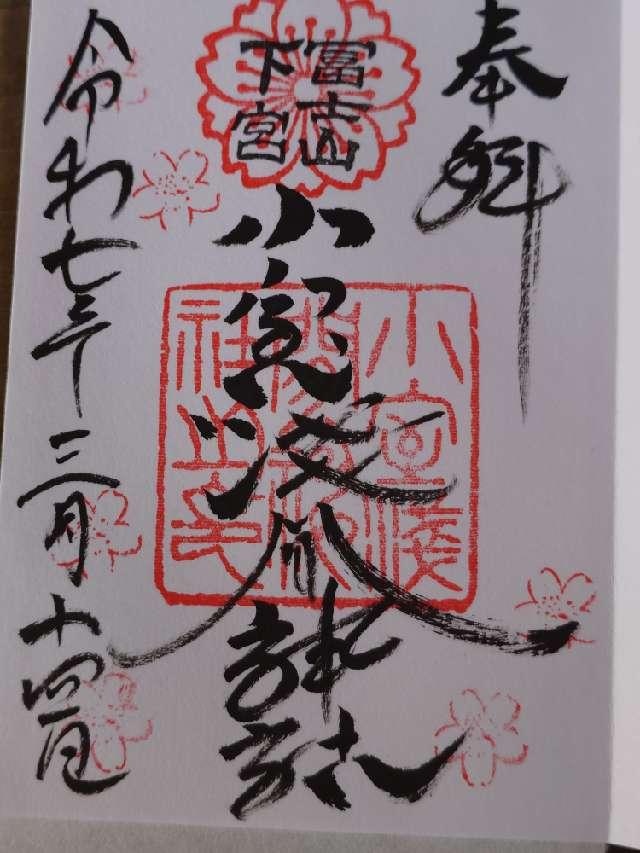 奉拝
冨士山
下宮
小室浅間神社
小室淺
間神
社之印
令和七年三月十四日